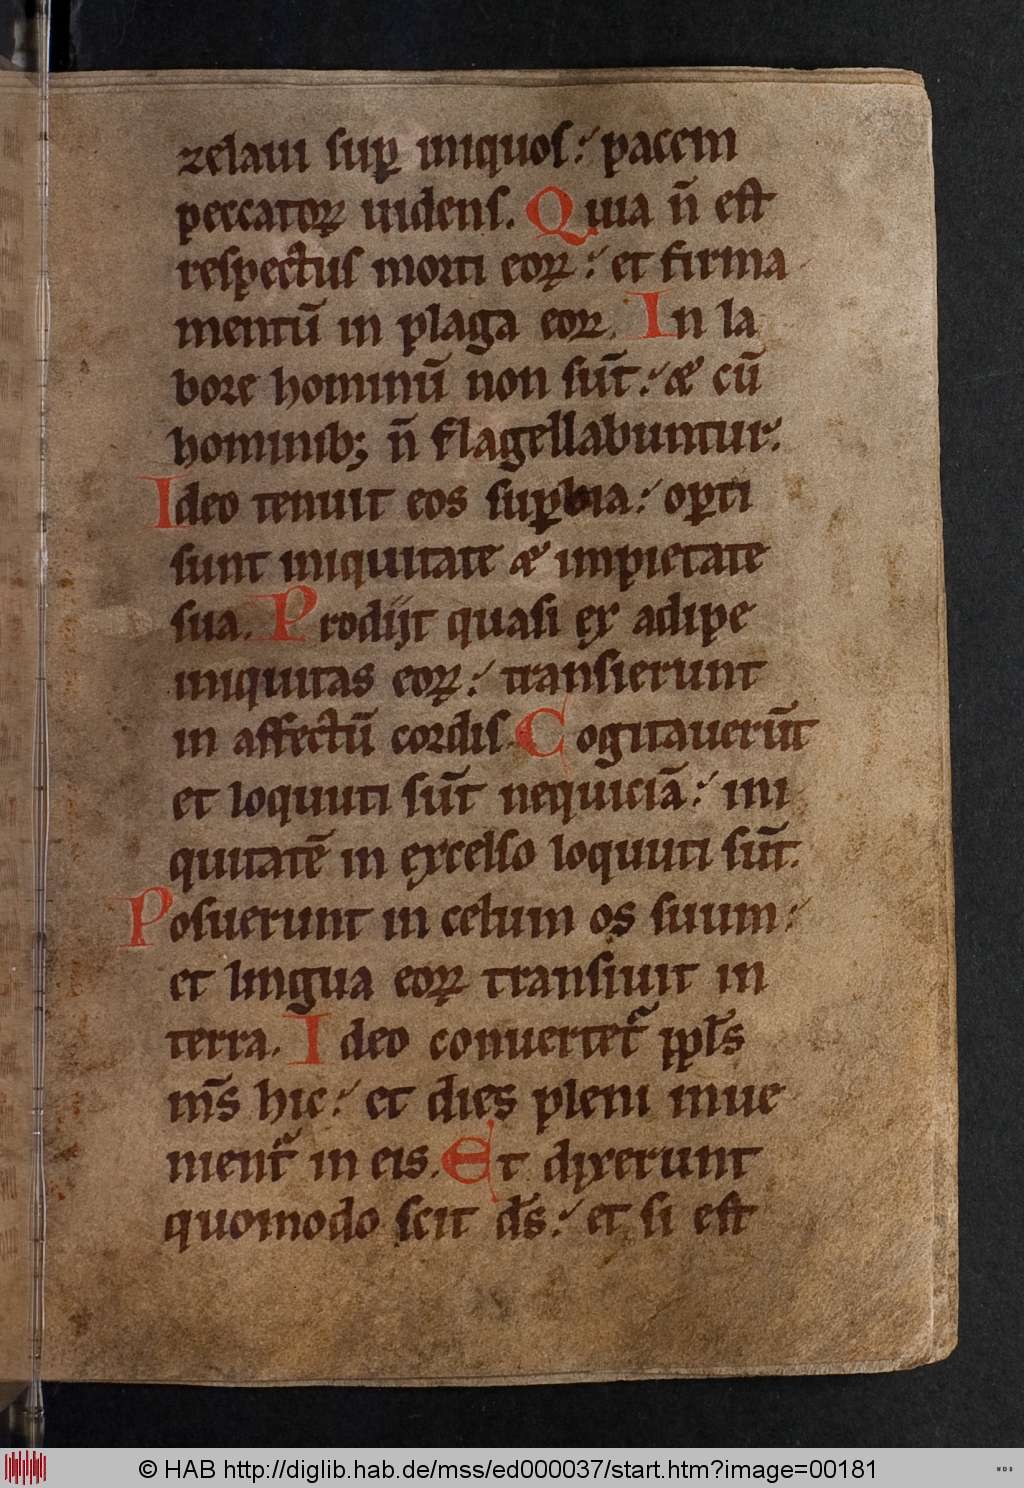 zelaui suꝑ iniquos: pacem
peccatoꝝ uidens. Quia n̄ est
respectus morti eoꝝ: et firma
mentū in plaga eoꝝ. In la
bore hominū non sūt: & cū
hominib; n̄ flagellabuntur.
Ideo tenuit eos suꝑbia: oꝑti
sunt iniquitate & impietate
sua. Prodijt quasi ex adipe
iniquitas eoꝝ: transierunt
in affectū cordis. Cogitauerūt
et loquuti sūt nequiciā: ini
quitatē in excelso loquuti sūt.
Posuerunt in celum os suum:
et lingua eoꝝ transiuit in
terra. Ideo conuertet᷑ ppl̄s
m̄s hic: et dies pleni inue
nient᷑ in eis. Et dixerunt
quomodo scit ds̄: et si est
© HAB http://diglib.hab.de/mss/ed000037/start.htm?image=00181